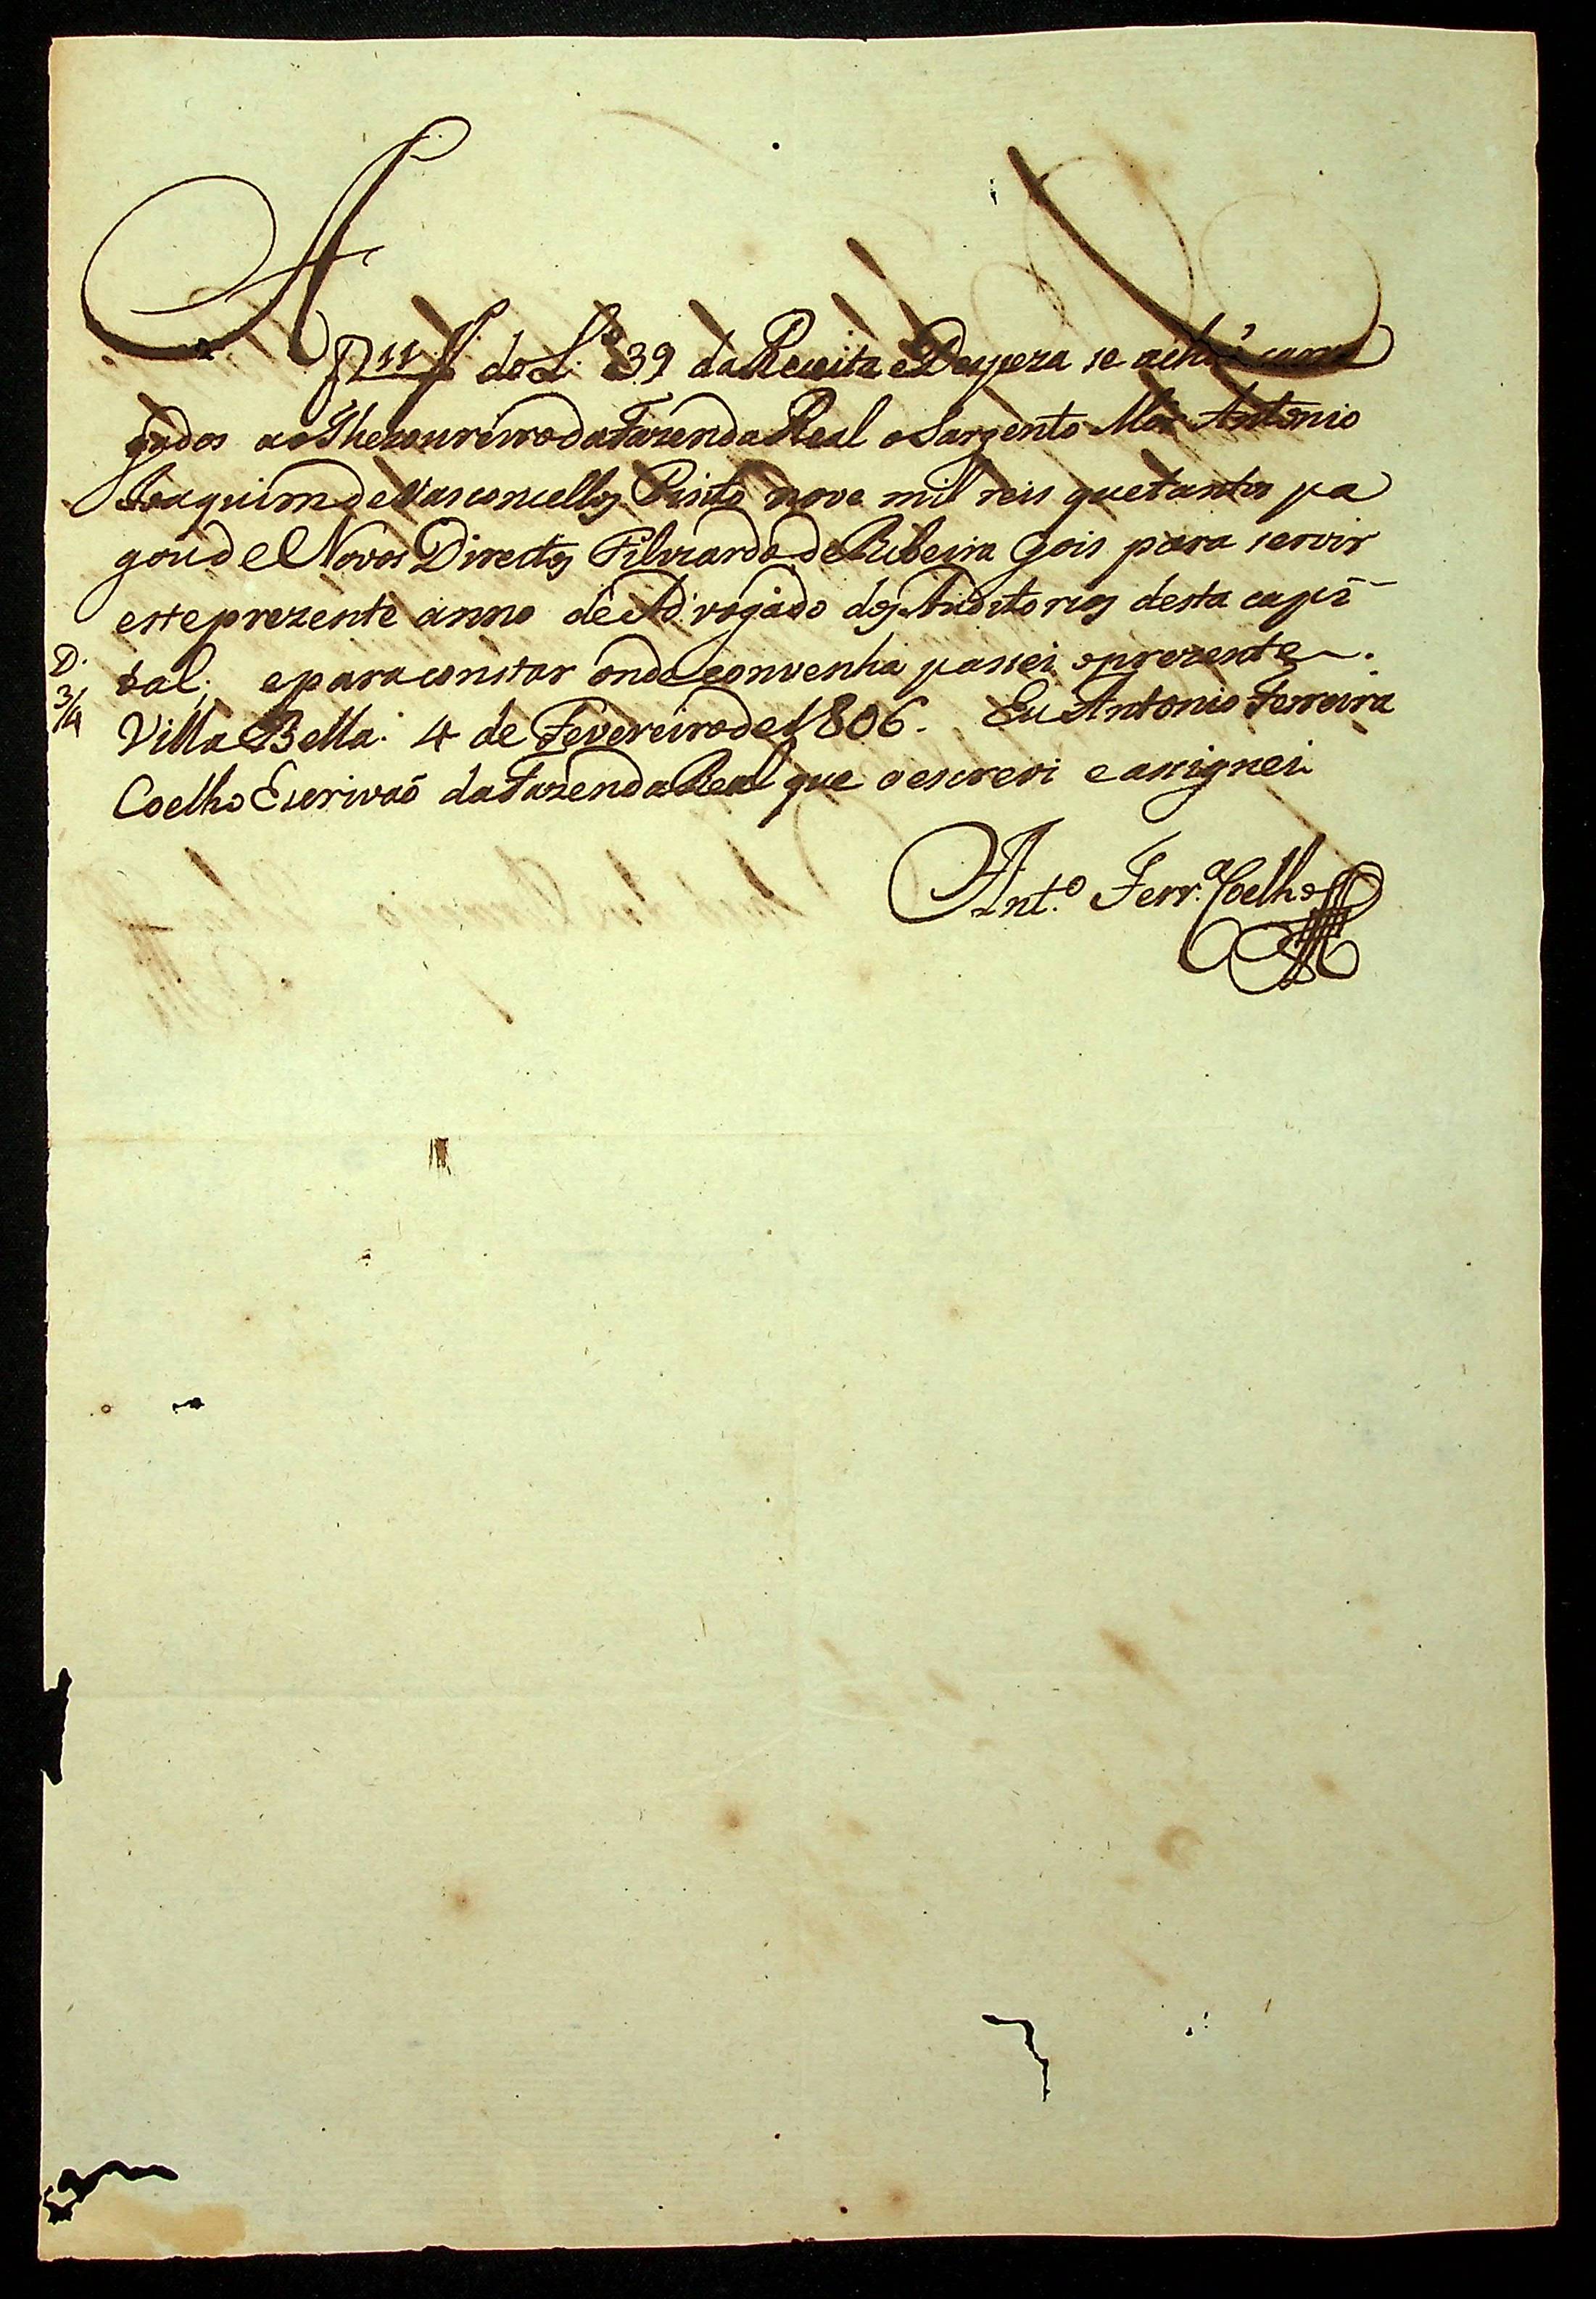 A f 11 f do L.º 39 da Receita e Despeza se achaõ carre
gados ao Thezoureiro da Fazenda Real o Sargento Mór Antonio
Joaquim de Vasconcellos Pinto nove mil reis que tantos pa
gou de Novos Directos de Ribeira Gois para servir
este prezente anno de Advogado dos Auditorios desta capi
tal; e para constar onde convenha passei o prezente.
Villa Bella. 4 de Fevereiro de 1806. Eu Antonio Ferreira
Coelho Escrivaõ da Fazenda Real que o escrevi e assignei.
D.
3/4
Ant.º Ferr.ª Coelho